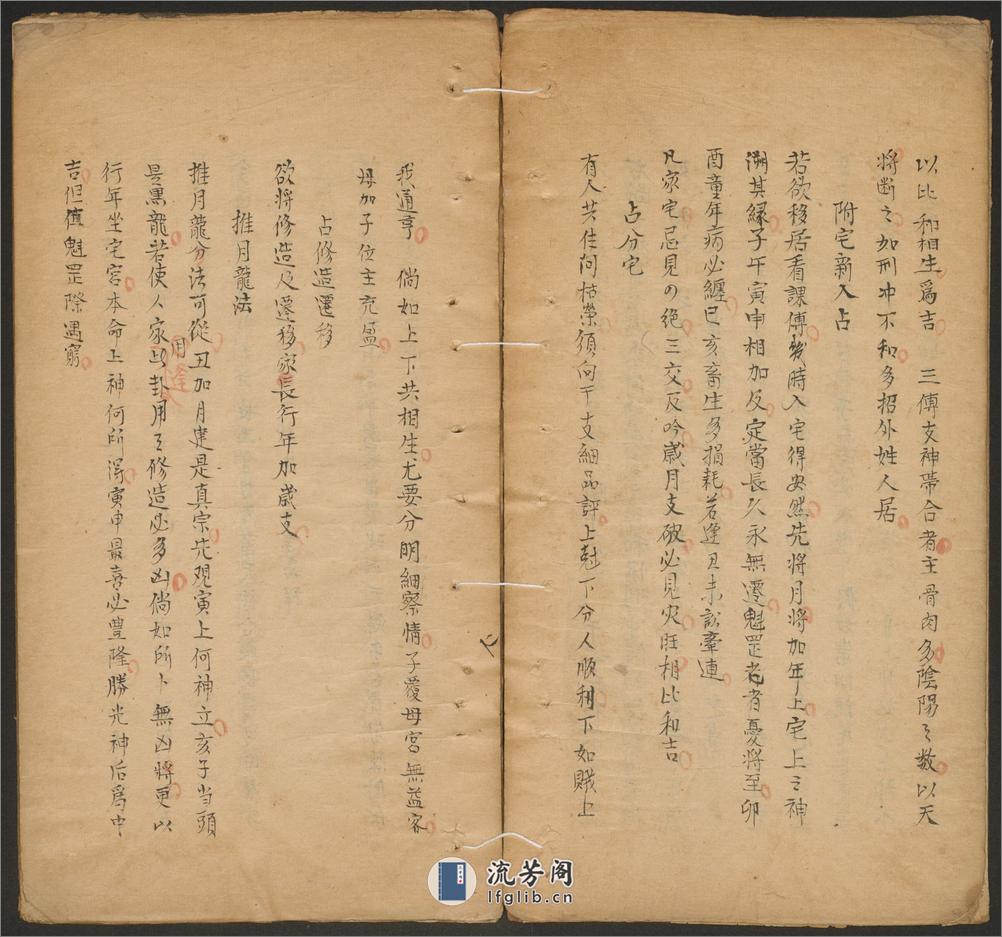 以比和相生爲吉　三傳支神帶合者主骨肉多陰陽之数以天
将断之如刑冲不和多招外姓人居
附宅新入占
若欲移居看課傳幾時入宅得安然先将月将加年上宅上之神
溯其縁子午寅申相加反定當長久永無遷魁罡老者憂将至卯
酉童年病必纏巳亥畜生多損耗若逢丑未訟牽連
凡家宅忌見四絶三交反吟歳月支破必見灾旺相比和吉
占分宅
有人共住问枯榮須向干支細品評上尅下分人順利下如賊上
我通亨　倘如上下共相生尤要分明細察情子愛母宮無益客
母加子位主充盈
占修造遷移
欲将修造及遷移家長行年加歳支
推月龍法
推月龍分法可從丑加月建是真宗先观寅上何神立亥子当頭
是黒龍若使人家占卦用之修造必多凶倘如所卜無凶将更以
用逢
行年坐宅宮本命上神何所得寅申最喜必豊隆勝光神后爲中
吉但値魁罡際遇窮
流芳阁
lfglib.cn